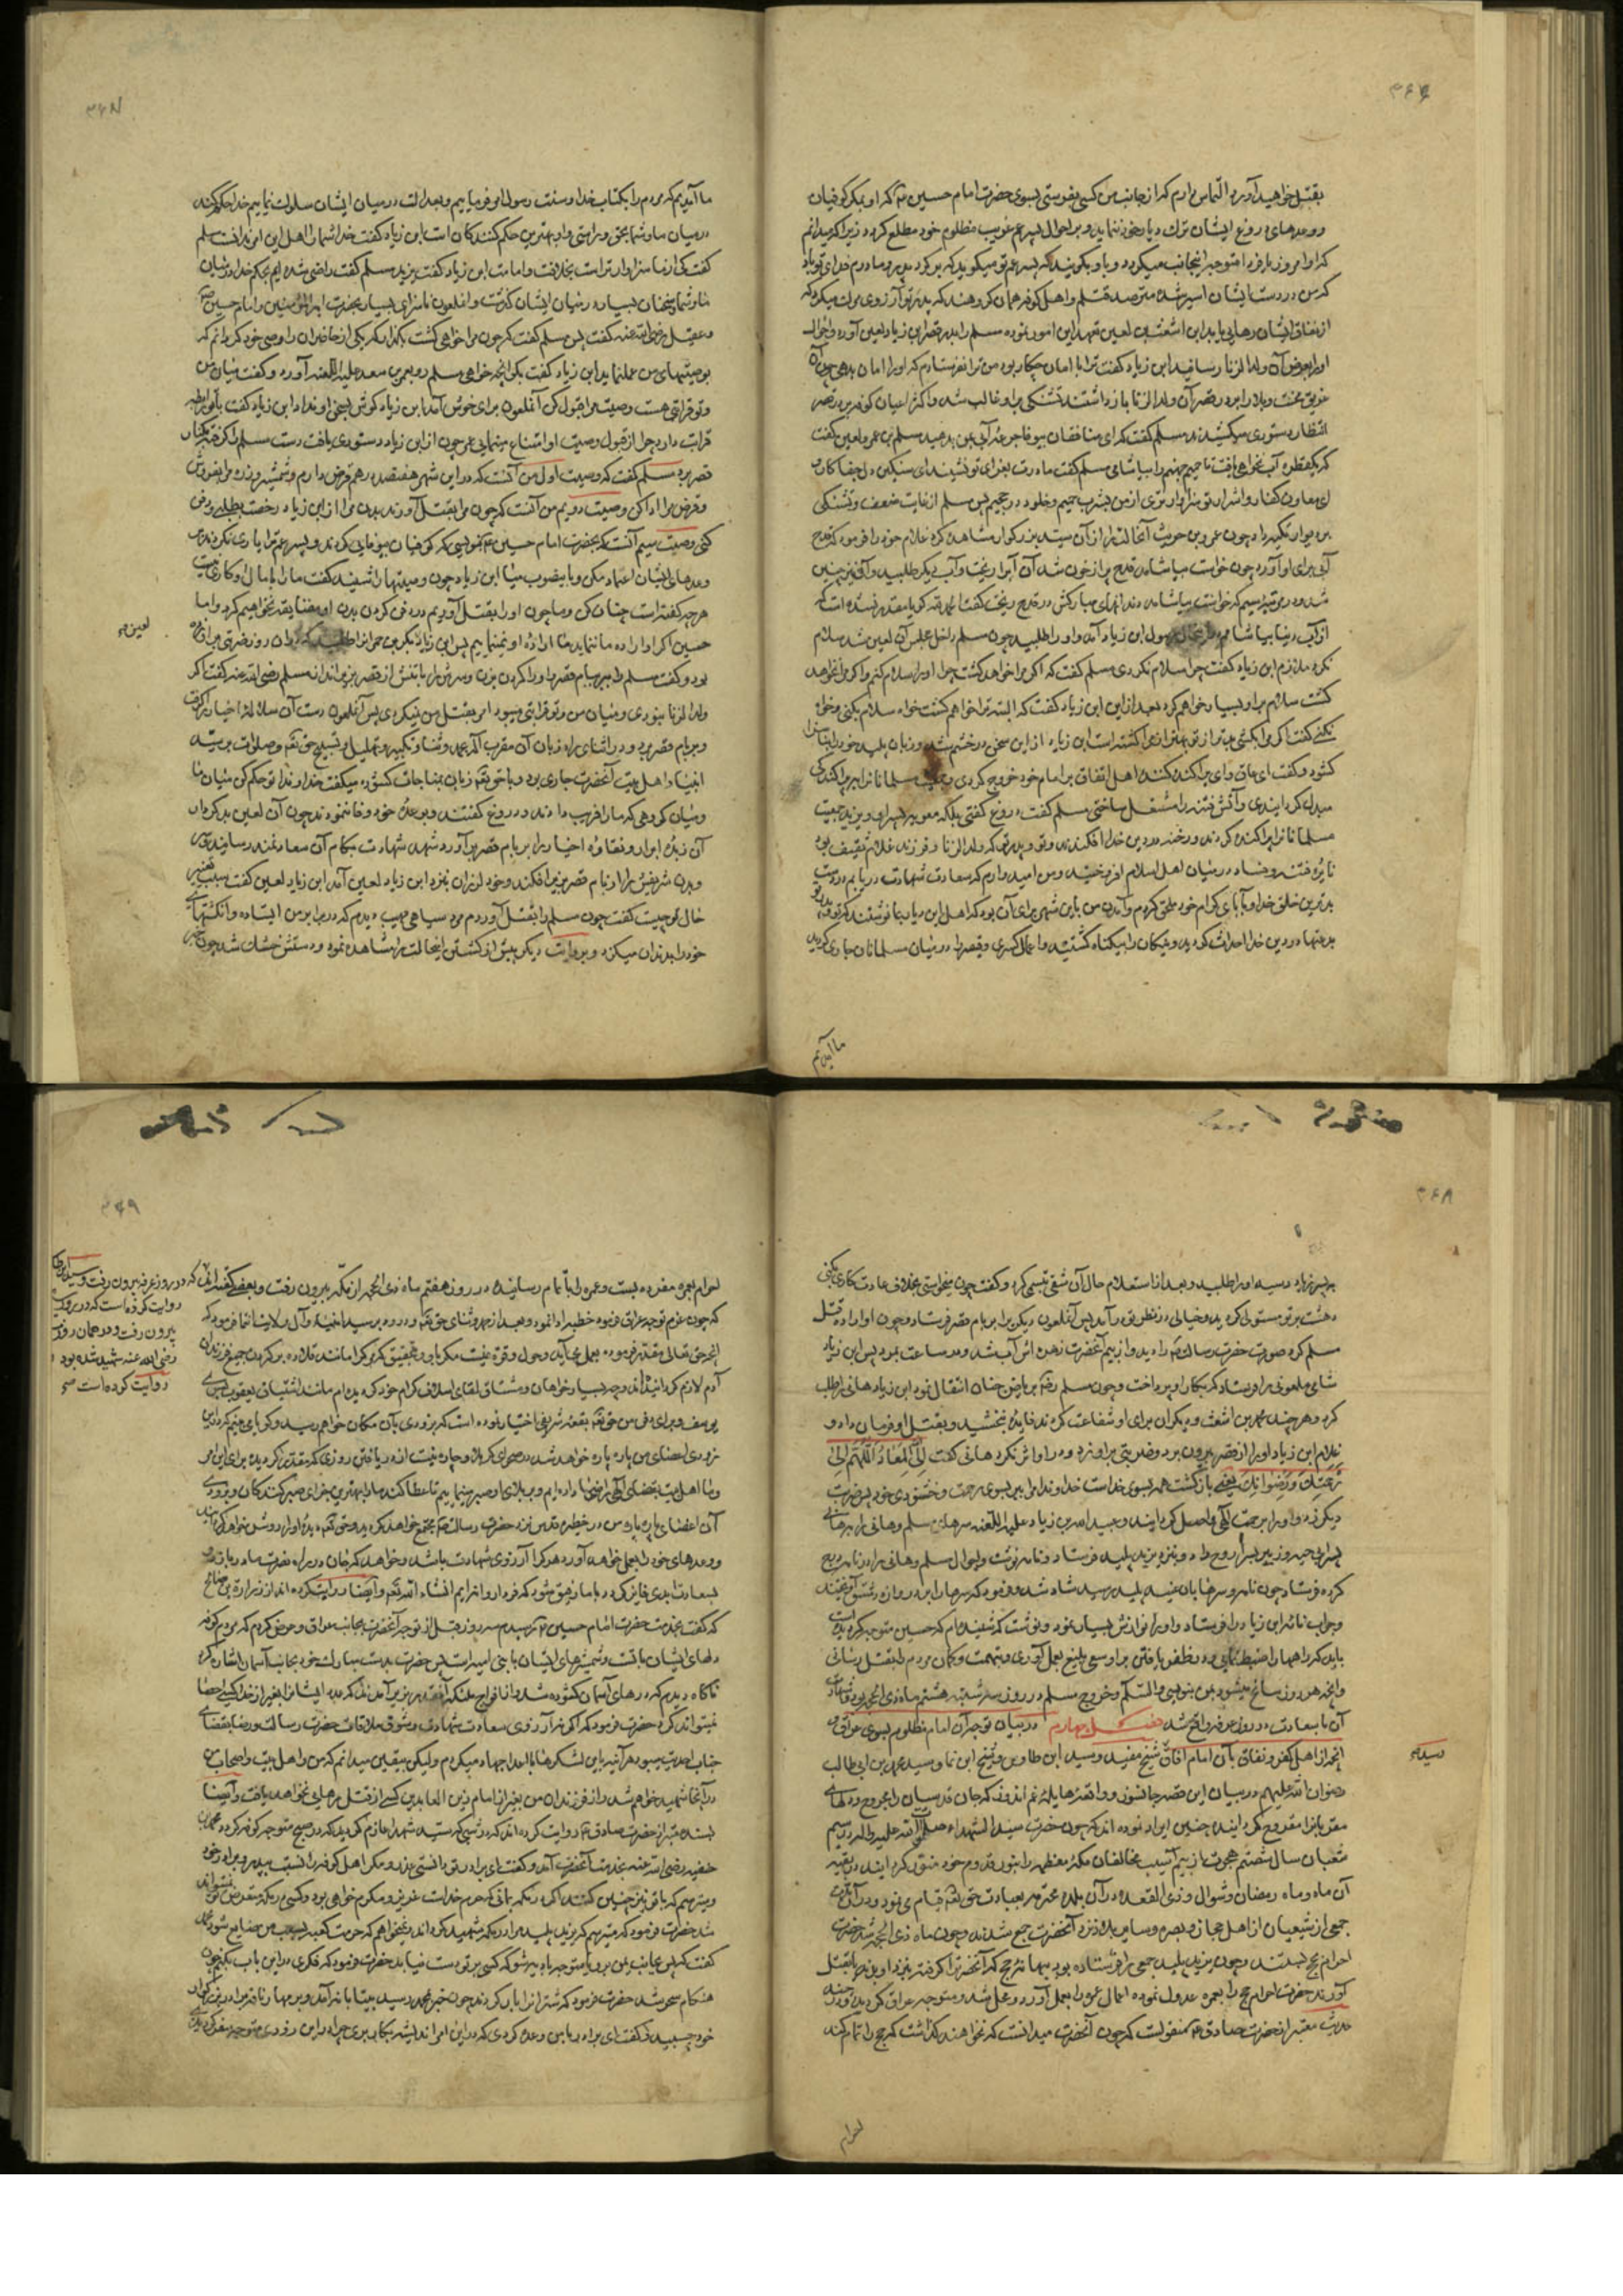 بقتل خواهید آورد التماس دارم که از جانب من کسی بفرستی بسوی حضرت امام حسین ع که او بمکر کوفیان
و وعدهای دروغ ایشان ترک دیار خود ننماید و بر احوال پسر عم غریب مظلوم خود مطلع گردد زیرا که میدانم
که او امروز یا فردا متوجه اینجانب میگردد و باو بگوید که پسر عم تو میگوید که برگرد پدر و مادرم فدای تو باد
که من در دست ایشان اسیر شدم و مترصد قتلم و اهل کوفه همان گروهند که پدر تو آرزوی مرگ میکرد که
از نفاق ایشان رهایی یابد ابن اشعث لعین تعهد این امور نموده مسلم را بدر قصر ابن زیاد لعین آورد و احوال
او را بعرض آن ولد الزنا رسانید ابن زیاد گفت ترا با امان چکار بود من ترا نفرستادم که او را امان بدهی چون آن
غریق محنت و بلا را بر در قصر آن ولد الزنا بازداشتند تشنگی بر او غالب شد و اکثر اعیان کوفه بر در قصر
انتظار دستوری میکشیدند مسلم گفت که ای منافقان بیوفا جرعه آبی بمن بدهید مسلم بن عمرو لعین گفت
که یکقطره آب نخواهی یافت تا حمیم جهنم را بیاشامی مسلم گفت مادرت بعزای تو نشیند ای سنگین دل جفاکار
ای معاون کفار و اشرار تو سزاوارتری از من بشرب حمیم و خلود در جحیم پس مسلم از غایت ضعف و تشنگی
بر دیوار تکیه داد چون عمرو بن حریث آن حالت را از آن سید بزرگوار مشاهده کرد غلام خود را فرمود که قدح
آبی برای او آورد چون خواست بیاشامد قدح پر از خون شد آن آب را ریخت و آب دیگر طلبید و آن نیز چنین
شد در مرتبه سیم که خواست بیاشامد دندانهای مبارکش در قدح ریخت گفت الحمد لله گویا مقدر نشده است که
از آب دنیا بیاشامم رسول ابن زیاد آمد و او را طلبید چون مسلم داخل مجلس آن لعین شد سلام
نکرد ملازم ابن زیاد گفت چرا سلام نکردی مسلم گفت که اگر مرا خواهد کشت چرا او را سلام کنم و اگر مرا نخواهد
کشت سلام بر او بسیار خواهم کرد بعد از این ابن زیاد گفت که البته ترا خواهم کشت خواه سلام بکنی و خواه
نکنی گفت اگر مرا بکشی بدتر از تو بهتر از مرا کشته است ابن زیاد از این سخن در خشم شد و زبان پلید خود را بناسزا
کشود و گفت ای عاق و ای پراکنده کننده اهل اتفاق بر امام خود خروج کردی و جمعیت مسلمانان را بپراکندگی
مبدل گردانیدی و آتش فتنه را مشتعل ساختی مسلم گفت دروغ گفتی بلکه معویه و پسر او یزید جمعیت
مسلمانان را پراکنده کردند و رخنه در دین خدا افکندند و تو و پدر تو که ولد الزنا و فرزند غلام ثقیف بود
نایره فتنه و فساد در میان اهل اسلام افروختید و من امید وارم که سعادت شهادت دریابم در دست
بدترین خلق خدا و بآبای کرام خود ملحق گردم و آمدن من باین شهر برای آن بود که اهل این دیار بما نوشتند که تو و پدر تو
بدعتها در دین خدا احداث کردید و نیکان را بیگناه کشتید و اعمال کسری و قیصر را در میان مسلمانان جاری کردید
ما آمدیم
ما آمدیم که مردم را بکتاب خدا و سنت رسول امر فرماییم و بعدالت در میان ایشان سلوک نماییم خدا حکم کند
در میان ما و شما بحق و راستی و او بهترین حکم کنندگان است ابن زیاد گفت خدا شما را اهل این امر ندانست مسلم
گفت کی از ما سزاوارتر است بخلافت و امامت ابن زیاد گفت یزید مسلم گفت راضی شده ایم بحکم خدا در میان
ما و شما سخنان بسیار در میان ایشان گذشت و آن ملعون ناسزای بسیار بحضرت امیر المؤمنین و امام حسین
و عقیل رضی الله عنه گفت پس مسلم گفت که چون مرا خواهی کشت بگذار که یکی از حاضران را وصی خود گردانم که
بوصیتهای من عمل نماید ابن زیاد گفت بگو آنچه خواهی مسلم رو بعمر بن سعد علیه اللعنه آورد و گفت میان من
و تو قرابتی هست وصیت مرا قبول کن آن ملعون برای خوش آمد ابن زیاد گوش بسخن او نداد ابن زیاد گفت با تو رابطه
قرابت دارد چرا از قبول وصیت او امتناع مینمایی عمر چون از ابن زیاد دستوری یافت دست مسلم را گرفته بکنار
قصر برد مسلم گفت که وصیت اول من آنست که در این شهر هفتصد درهم قرض دارم و شمشیر و زره مرا بفروش
و قرض مرا ادا کن وصیت دویم من آنست که چون مرا بقتل آورند بدن مرا از ابن زیاد رخصت بطلبی و دفن
کنی وصیت سیم آنست که بحضرت امام حسین ع بنویسی که کوفیان بیوفایی کردند و پسر عم ترا یاری نکردند بر
وعدهای ایشان اعتماد مکن و بایصوب میا ابن زیاد چون وصیتها را شنید گفت ما را با مال او کاری نیست
هر چه گفته است چنان کن و ما چون او را بقتل آوردیم در دفن کردن بدن او مضایقه نخواهیم کرد و اما
حسین اگر او اراده ما ننماید ما اراده او نمینماییم پس ابن زیاد بکر بن حمران را طلبید که در آن روز ضربتی بر او
بود و گفت مسلم را ببر ببام قصر و او را گردن بزن و سرش را با تنش از قصر بزیر انداز مسلم رضی الله عنه گفت اگر
ولد الزنا نبودی و میان من و تو قرابتی میبود امر بقتل من نمیکردی پس آن ملعون دست آن سلاله اخیار را گرفت
و بر بام قصر برد و در اثنای راه زبان آن مقرب اله بحمد و ثنا و تکبیر و تهلیل و تسبیح حق تعالی و صلوات بر سید
انبیا و اهل بیت آنحضرت جاری بود و با حق تعالی زبان بمناجات کشوده میگفت خداوندا تو حکم کن میان ما
و میان گروهی که ما را فریب دادند و دروغ گفتند و بوعده خود وفا ننمودند چون آن لعین بدکردار
آن زبده ابرار و نقاوه اخیار را بر بام قصر برآورد شهد شهادت بکام آن سعادتمند رسانید سر
و بدن شریفش را از بام قصر بزیر افکند و خود لرزان بنزد ابن زیاد لعین آمد ابن زیاد لعین گفت سبب تغییر
حال تو چیست گفت چون مسلم را بقتل آوردم مرد سیاهی مهیب دیدم که در برابر من ایستاده و انگشتهای
خود را بدندان میگزد و بروایت دیگر پیش از کشتن اینحالت را مشاهده نمود و دستش خشک شد چون خبر
لعین
بپسر زیاد رسید او را طلبید و بعد از استعلام حال آن شقی تبسمی کرد و گفت چون میخواستی بخلاف عادت کاری بکنی
دهشت بر تو مستولی گردید و خیالی در نظر تو درآمد پس آن ملعون دیگری را بر بام قصر فرستاد و چون او اراده قتل
مسلم کرد صورت حضرت رسالت را دید و از بیم آنحضرت زهره اش آب شد و در ساعت بمرد پس ابن زیاد
شامی ملعونی را فرستاد که بکار او پرداخت و چون مسلم بریاض جنان انتقال نمود ابن زیاد هانی را طلب
کرد و هر چند محمد بن اشعث و دیگران برای او شفاعت کردند فایده نبخشید و بقتل او فرمان داد و
غلام ابن زیاد او را از قصر بیرون برد و ضربتی بر او زد و در او اثر نکرد هانی گفت إلی الله المعاد اللهم إلی
رحمتک و رضوانک یعنی بازگشت همه بسوی خداست خداوندا مرا ببر بسوی رحمت و خشنودی خود پس ضربت
دیگر زد و او را برحمت الهی واصل گردانید و عبید الله بن زیاد علیه اللعنه سرهای مسلم و هانی را بهر هانی
کرده فرستاد چون نامه و سرها بان عنید پلید رسید شاد شد و فرمود که سرها را بر دروازه دمشق آویختند
و جواب نامه ابن زیاد را فرستاد و او را نوازش بسیار نمود و نوشت که شنیده ام که حسین متوجه عراق گردیده است
باید که راهها را ضبط نمایی و در ظفر یافتن بر او سعی بلیغ بعمل آوری و بتهمت و گمان مردم را بقتل رسانی
و آنچه هر روز سانح میشود بمن بنویسی و السلام و خروج مسلم در روز سه شنبه هشتم ماه ذی الحجه بود و شهادت
آن با سعادت در روز عرفه واقع شد فصل چهارم در بیان توجه آن امام مظلوم بسوی عراق و
آنچه از اهل کفر و نفاق بآن امام آفاق شیخ مفید و سید ابن طاوس و شیخ ابن نما و سید محمد بن ابی طالب
رضوان الله علیهم در بیان این قصه جانسوز و واقعه هایله غم اندوز که جان قدسیان را مجروح و دلهای
مقربان را مقروح گردانیده چنین ایراد نموده اند که چون حضرت سید الشهداء صلوات الله علیه در سیم
شعبان سال شصتم هجرت از بیم آسیب مخالفان مکه معظمه را بنور قدوم خود منور گردانید در بقیه
آن ماه و ماه رمضان و شوال و ذی القعده در آن بلده محترمه بعبادت حق تعالی قیام می نمود و در آن مدت
جمعی از شیعیان از اهل حجاز و بصره و سایر بلاد نزد آنحضرت جمع شدند و چون ماه ذی الحجه شد حضرت
احرام بحج بستند و چون یزید پلید جمعی را فرستاده بود ببهانه حج که آنحضرت را گرفته بنزد او برند یا بقتل
آورند حضرت احرام حج را بعمره عدول نموده اعمال عمره را بعمل آورد و محل شد و متوجه عراق گردید و در
حدیث معتبر از حضرت صادق ع منقولست که چون آنحضرت میدانست که نخواهند گذاشت که حج را تمام کند
احرام
احرام بعمره مفرده بست و عمره را باتمام رسانید در روز هفتم ماه ذی الحجه از مکه بیرون رفت و بعضی گفته اند
که چون عزم توجه عراق فرمود خطبه ادا نمود و بعد از حمد و ثنای حق تعالی و درود بر سید انبیا و آل او فرمود که
آدم لازم گردانیده اند و چه بسیار خواهان و مشتاق لقای اسلاف کرام خود گردیده ام مانند اشتیاق یعقوب بسوی
یوسف و برای دفن من حق تعالی بقعه شریفی اختیار نموده است که بزودی بآن مکان خواهم رسید و گویا می بینم که در این
زودی اعضای من پاره پاره خواهد شد در صحرای کربلا و چاره نیست از دریافتن روزی که مقدر گردیده برای این امر
و ما اهل بیت بقضای الهی رضا داده ایم و بر بلای او صبر مینماییم تا عطا کند ما را بهترین جزای صبر کنندگان و بزودی
آن اعضای پاره پاره من در حظیره قدس نزد حضرت رسالت مجتمع خواهد گردید و حق تعالی دیده او را روشن خواهد گردانید
و وعدهای خود را بعمل خواهد آورد هر که را آرزوی شهادت باشد و خواهد که جان در راه نصرت ما در بازد و
بسعادت ابدی فایز گردد با ما رفیق شود که فردا روانه ایم انشاء الله تعالی و ایضا روایت کرده اند از زراره بن صالح
که گفت بخدمت حضرت امام حسین ع رسیدم سه روز قبل از توجه آنحضرت بجانب عراق و عرض کردم که مردم کوفه
دلهای ایشان با تست و شمشیرهای ایشان با بنی امیه است پس حضرت بدست مبارک خود بجانب آسمان اشاره کرد
ناگاه دیدم که درهای آسمان کشوده شد و افواج ملئکه آنقدر بزیر آمدند که عدد ایشان را بغیر از خدا کسی احصا
نمیتواند کرد حضرت فرمود که اگر نه آرزوی سعادت شهادت و شوق ملاقات حضرت رسالت و رضا بقضای
جناب احدیت میبود هر آینه باین لشکرها با اعدا جهاد میکردم ولیکن بیقین میدانم که من و اهل بیت و اصحاب من
در آنجا شهید خواهم شد و از فرزندان من بغیر از امام زین العابدین کسی از قتل رهایی نخواهد یافت و ایضا
بسند معتبر از حضرت صادق ع روایت کرده اند که در شبی که سید شهدا عازم گردید که در صبح متوجه کوفه گردد محمد بن
حنفیه رضی الله عنه بخدمت آنحضرت آمد و گفت ای برادر تو دانستی غدر و مکر اهل کوفه را نسبت بپدر و برادر خود
و میترسم که با تو نیز چنین کنند اگر در مکه بمانی که حرم خداست عزیز و مکرم خواهی بود و کسی در مکه متعرض تو نمیتواند
شد حضرت فرمود که میترسم که یزید پلید مرا در مکه شهید گرداند و نمیخواهم که حرمت کعبه بسبب من ضایع شود محمد
گفت که پس بجانب یمن برو یا متوجه بادیه شو که کسی بر تو دست نیابد حضرت فرمود که فکری در این باب بکنم چون
هنگام سحر شد حضرت فرمود که شتران را بار کردند چون خبر بمحمد رسید بیتابانه آمد و بر مهار ناقه برادر بزرگوار
خود چسبید و گفت ای برادر با من وعده کردی که در این امر اندیشه بکار بری چرا در این زودی متوجه سفر گردیدی
که در روز عرفه بیرون رفت و سید ابن طاوس
روایت کرده است که در روز سیم
بیرون رفت و در همان روز مسلم
رضی الله عنه شهید شده بود
روایت کرده است صح